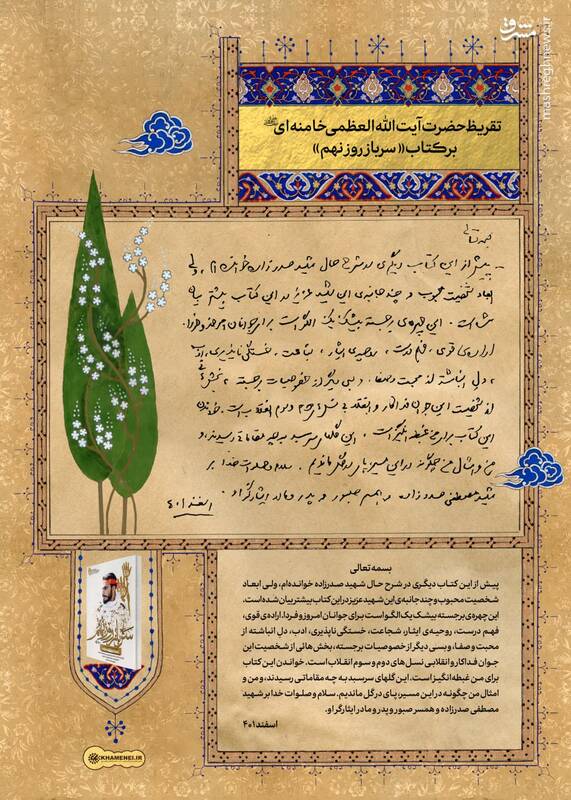 مشرق
mashreghnews.ir
تقریظ حضرت آیت الله العظمی خامنه‌ای
بر کتاب «سرباز روز نهم»
بسمه‌تعالی
پیش از این کتاب دیگری در شرح حال شهید صدرزاده خوانده‌ام، ولی
ابعاد شخصیت محبوب و چندجانبه‌ی این شهید عزیز در این کتاب بیشتر بیان
شده است. این چهره‌ی برجسته بیشک یک الگو است برای جوانان امروز و فردا.
اراده‌ی قوی، فهم درست، روحیه‌ی ایثار، شجاعت، خستگی ناپذیری، ادب،
دل انباشته از محبت و صفا، و بسی دیگر از خصوصیات برجسته، بخش‌هائی
از شخصیت این جوان فداکار و انقلابی نسل های دوم و سوم انقلاب است. خواندن
این کتاب برای من غبطه انگیز است. این گلهای سرسبد به چه مقاماتی رسیدند، و
من و امثال من چگونه در این مسیر، پای در گل ماندیم. سلام و صلوات خدا بر
شهید مصطفی صدرزاده و همسر صبور و پدر و مادر ایثارگر او.
اسفند ۴۰۱
بسمه تعالی
پیش از این کتاب دیگری در شرح حال شهید صدرزاده خوانده‌ام، ولی ابعاد
شخصیت محبوب و چندجانبه‌ی این شهید عزیز در این کتاب بیشتر بیان شده است.
این چهره‌ی برجسته بیشک یک الگو است برای جوانان امروز و فردا. اراده‌ی قوی،
فهم درست، روحیه‌ی ایثار، شجاعت، خستگی ناپذیری، ادب، دل انباشته از
محبت و صفا، و بسی دیگر از خصوصیات برجسته، بخش هائی از شخصیت این
جوان فداکار و انقلابی نسل های دوم و سوم انقلاب است. خواندن این کتاب
برای من غبطه انگیز است. این گلهای سرسبد به چه مقاماتی رسیدند، و من و
امثال من چگونه در این مسیر، پای در گل ماندیم. سلام و صلوات خدا بر شهید
مصطفی صدرزاده و همسر صبور و پدر و مادر ایثارگر او.
اسفند ۴۰۱
KHAMENEI.IR